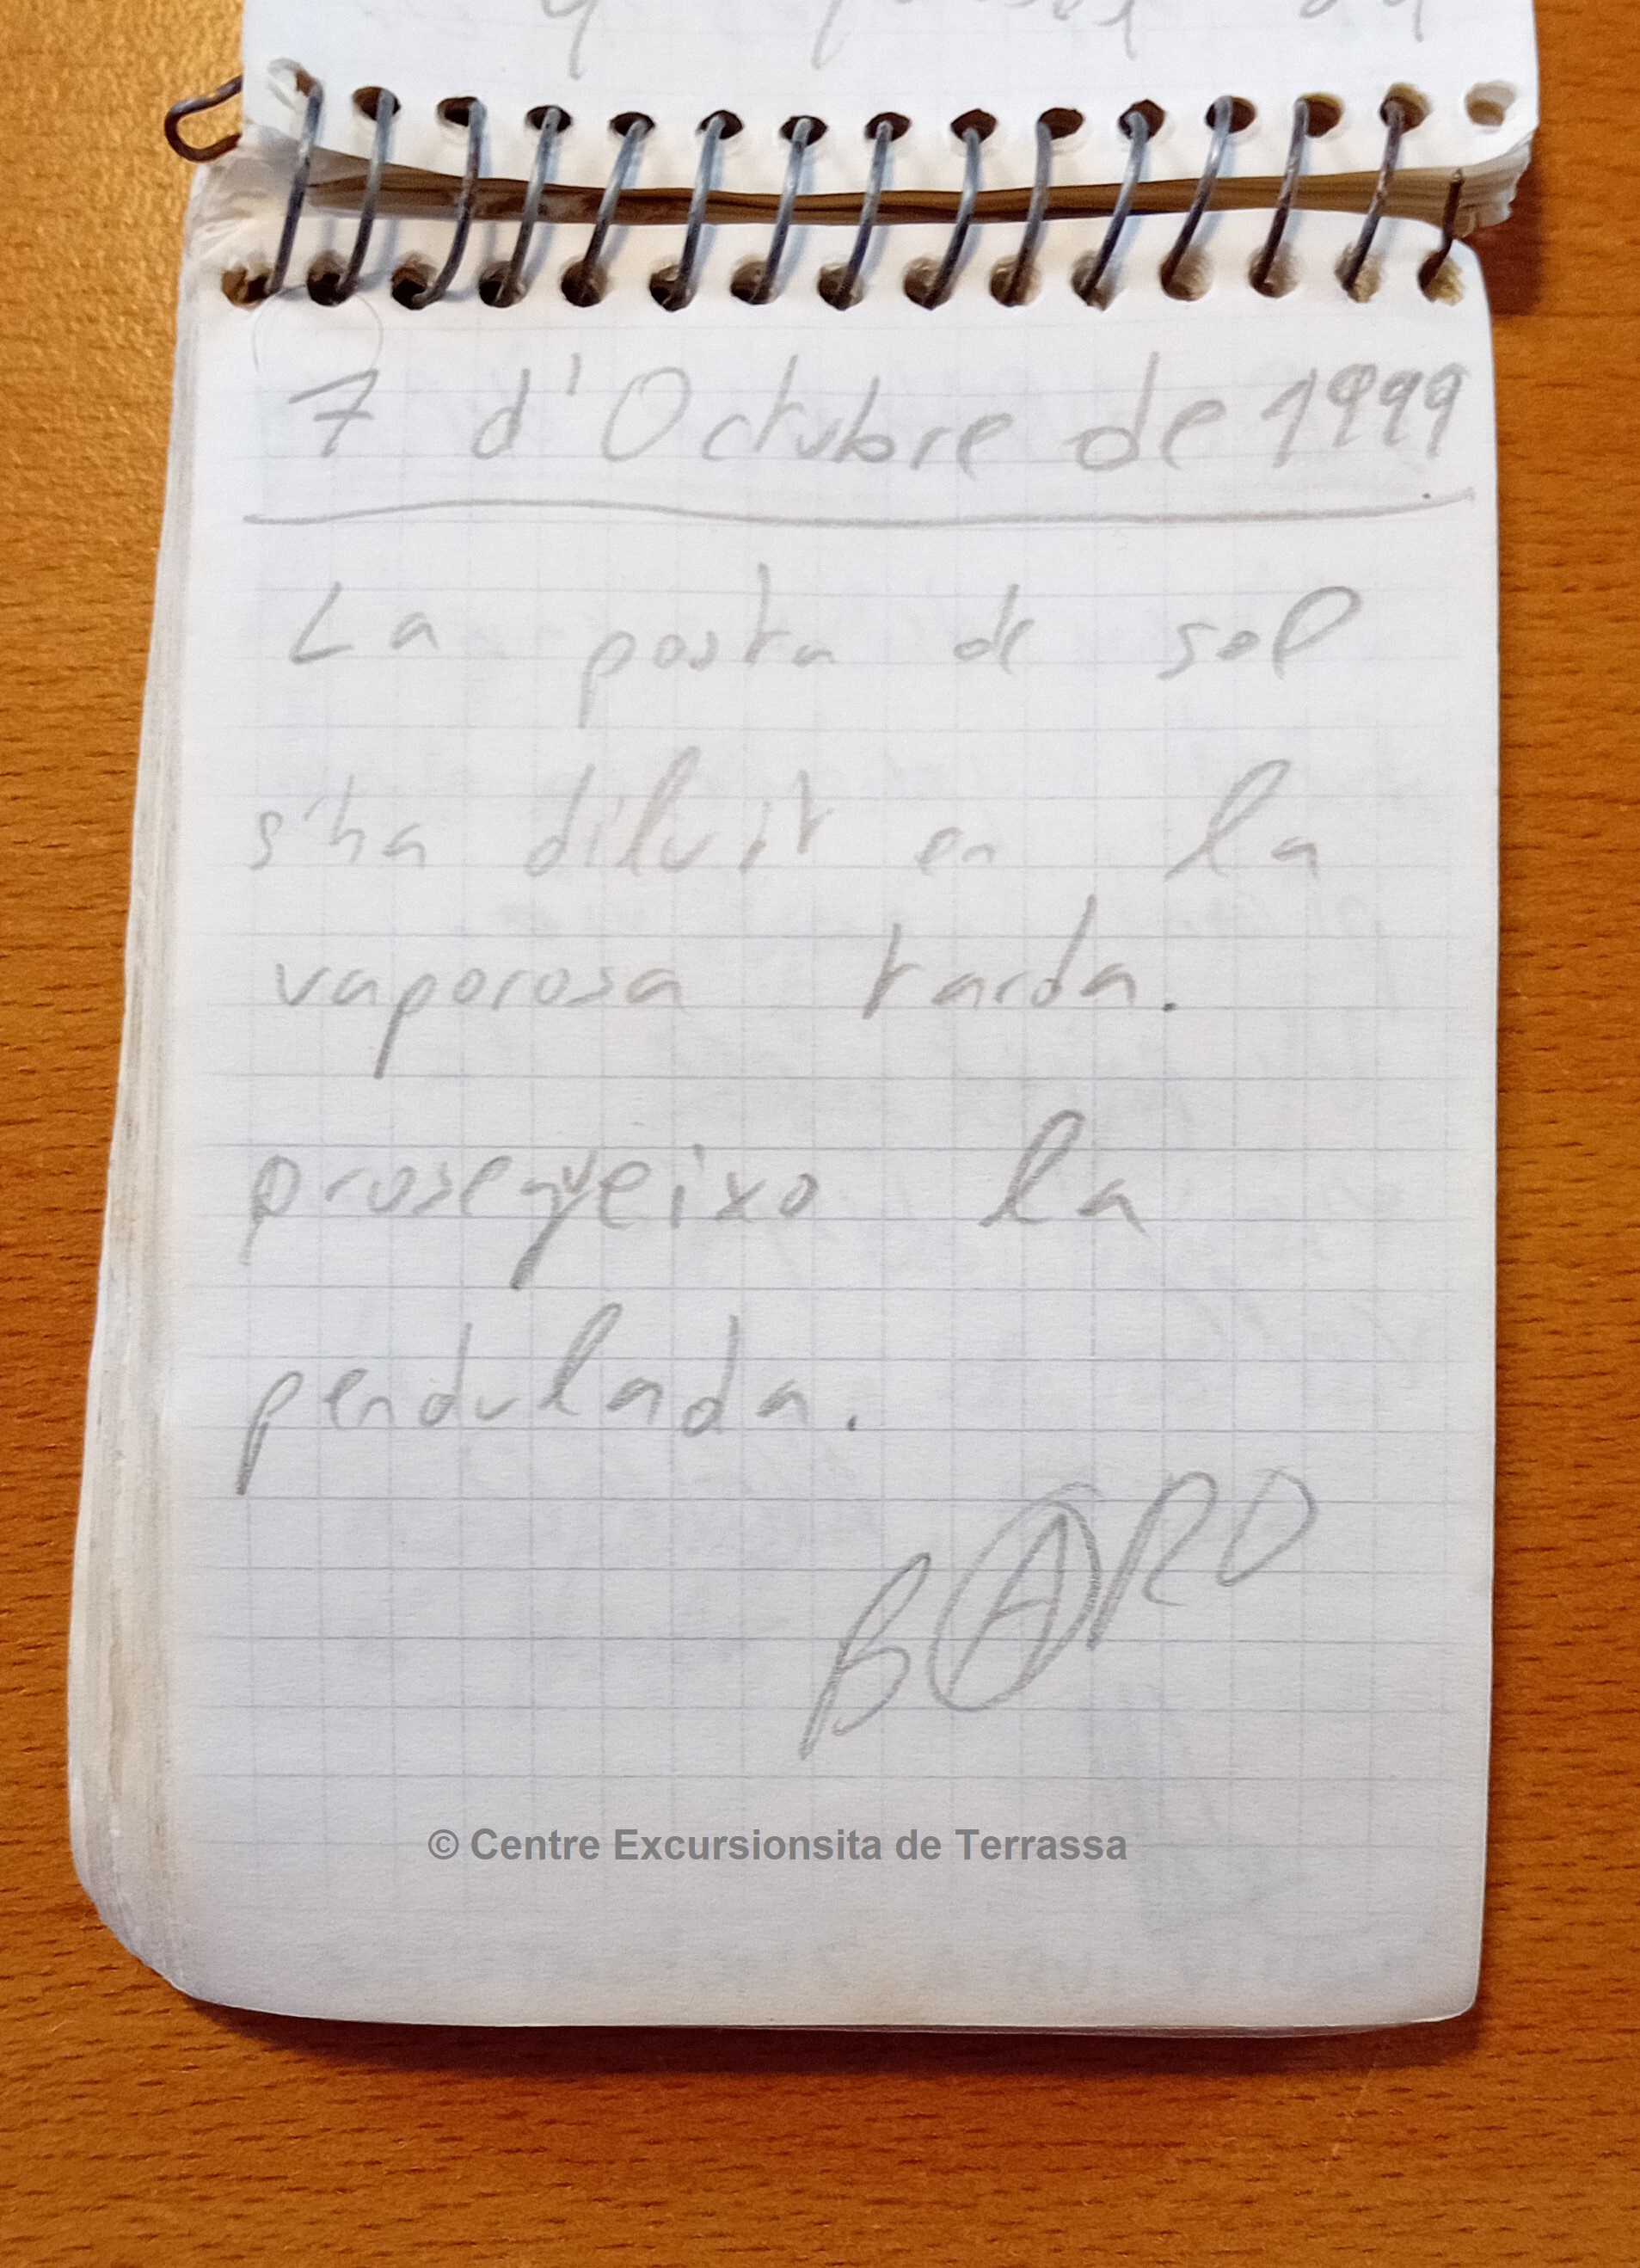 7 d'Octubre de 1999
La posta de sol
s'ha diluit en la
vaporosa tarda.
prosegueixo la
pendulada.
BARD
© Centre Excursionsita de Terrassa